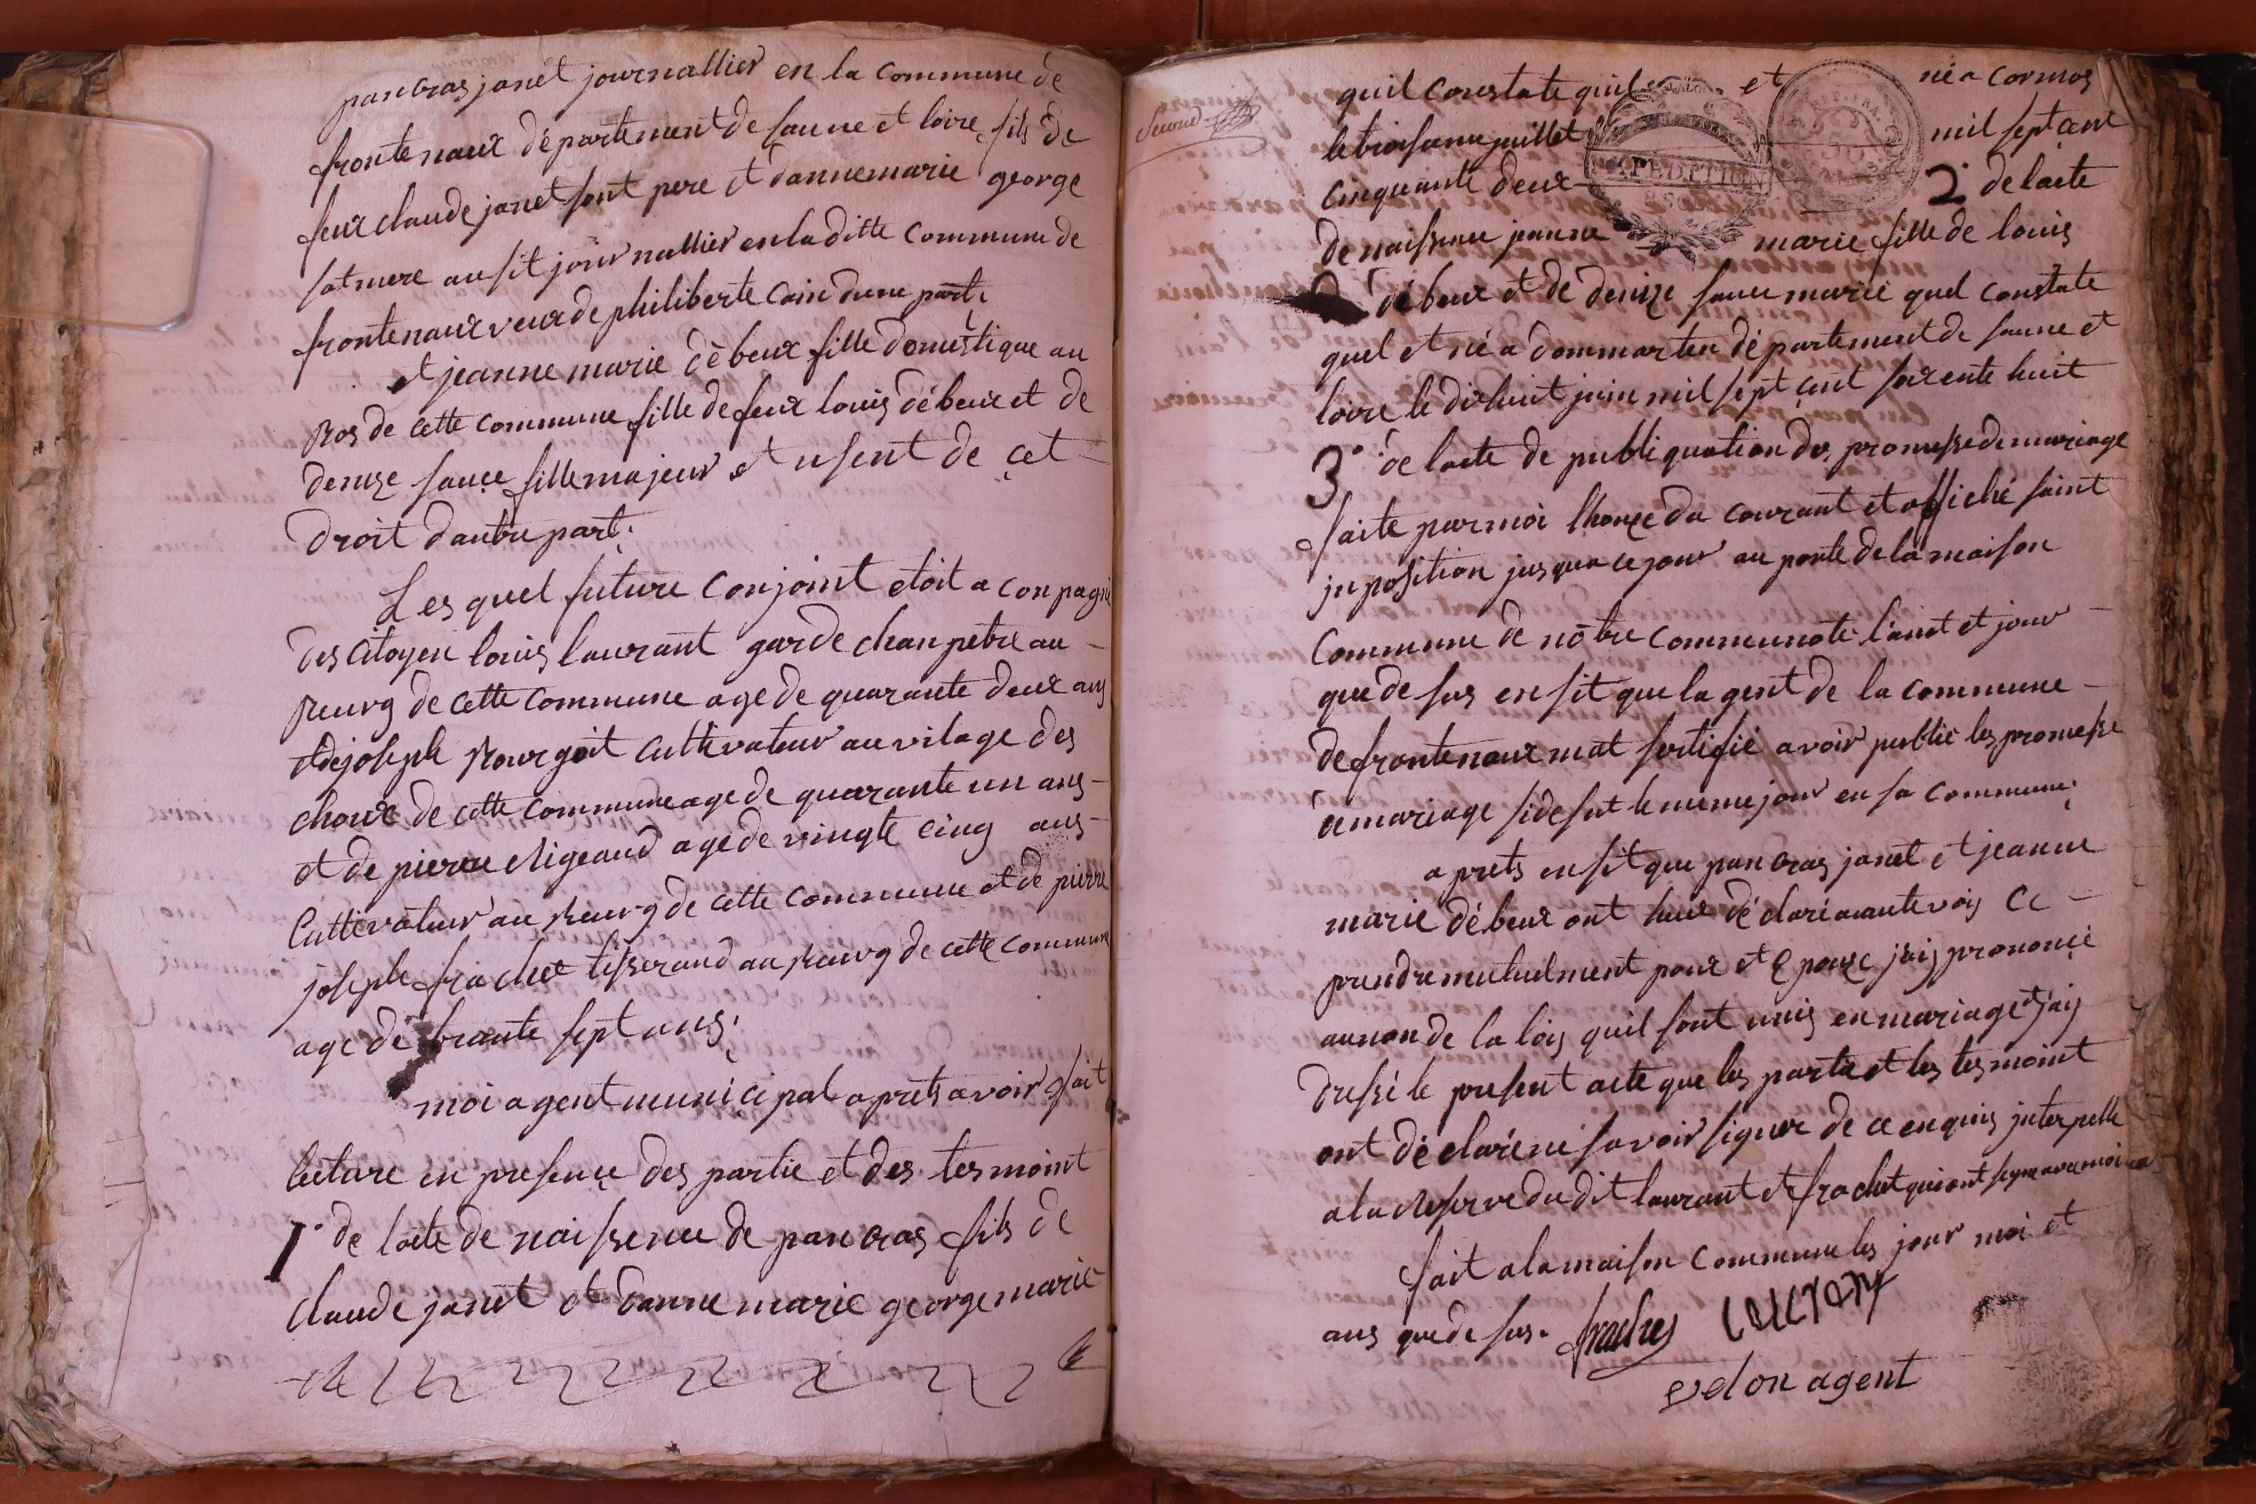 pancras janet journallier en la commune de
frontenaux département de saune et loire fils de
feux claude janet sont pere et danne marie george
sat mere ausit journallier en la ditte commune de
frontenaux veux de philiberte cain dune part,
et jeanne marie débeux fille domestique au
Bos de cette commune fille de feux louis débeux et de
denize sauce fille majeur et usent de cet
droit dautre part.
Les quel future conjoint etoit a conpagné
des citoyen louis laurant garde chanpetre au
Bourg de cette commune age de quarante deux ans
et de joseph Bourgoit cultivateur au vilage des
choux de cette commune age de quarante un ans
et de pierre Rigeaud age de vingte cinq ans
Cultivateur au Bourg de cette commune et de pierre
joseph frachet tisserand au Bourg de cette commune
age de trante sept ans.
moi agent municipal aprets avoir fait
lecture en presence des partie et des tesmoint
1° de lacte de naissence de pancras fils de
claude janet et danne marie george marié
Second
quil constate quil et né a cormos
le troisieme juillet mil sept cent
cinquante deux 2° de lacte
EXPEDITION
de naissence jeanne marie fille de louis
débeux et de denize sauce marié quel constate
quel et né a dommarten département de saune et
loire le dixhuit juin mil sept cent soixente huit
3° de lacte de publiquation des promesse de mariage
faite par moi lhonze du courant et affiché saint
inposition jusqua ce jour au porte de la maison
Commune de nôtre communote lant et jour
que de sus ensit que lagent de la commune
de frontenaux mat sertifié avoir publié les promesse
de mariage side sut le meme jour en sa commune,
aprets ensit que pancras janet et jeanne
marie débeux ont heux déclaré aaute vois ce
prendre mutuelment pour et epouze jais prononcé
au non de la lois quil sont unis en mariage et jais
dressé le present acte que les partie et les tesmoint
ont déclaré ne savoir signer de ce enquis interpellé
a la Reserve du dit laurant et frachet qui ont signe avec moi
fait a la maison commune les jour moi et
ans que de sus. frachet
agent